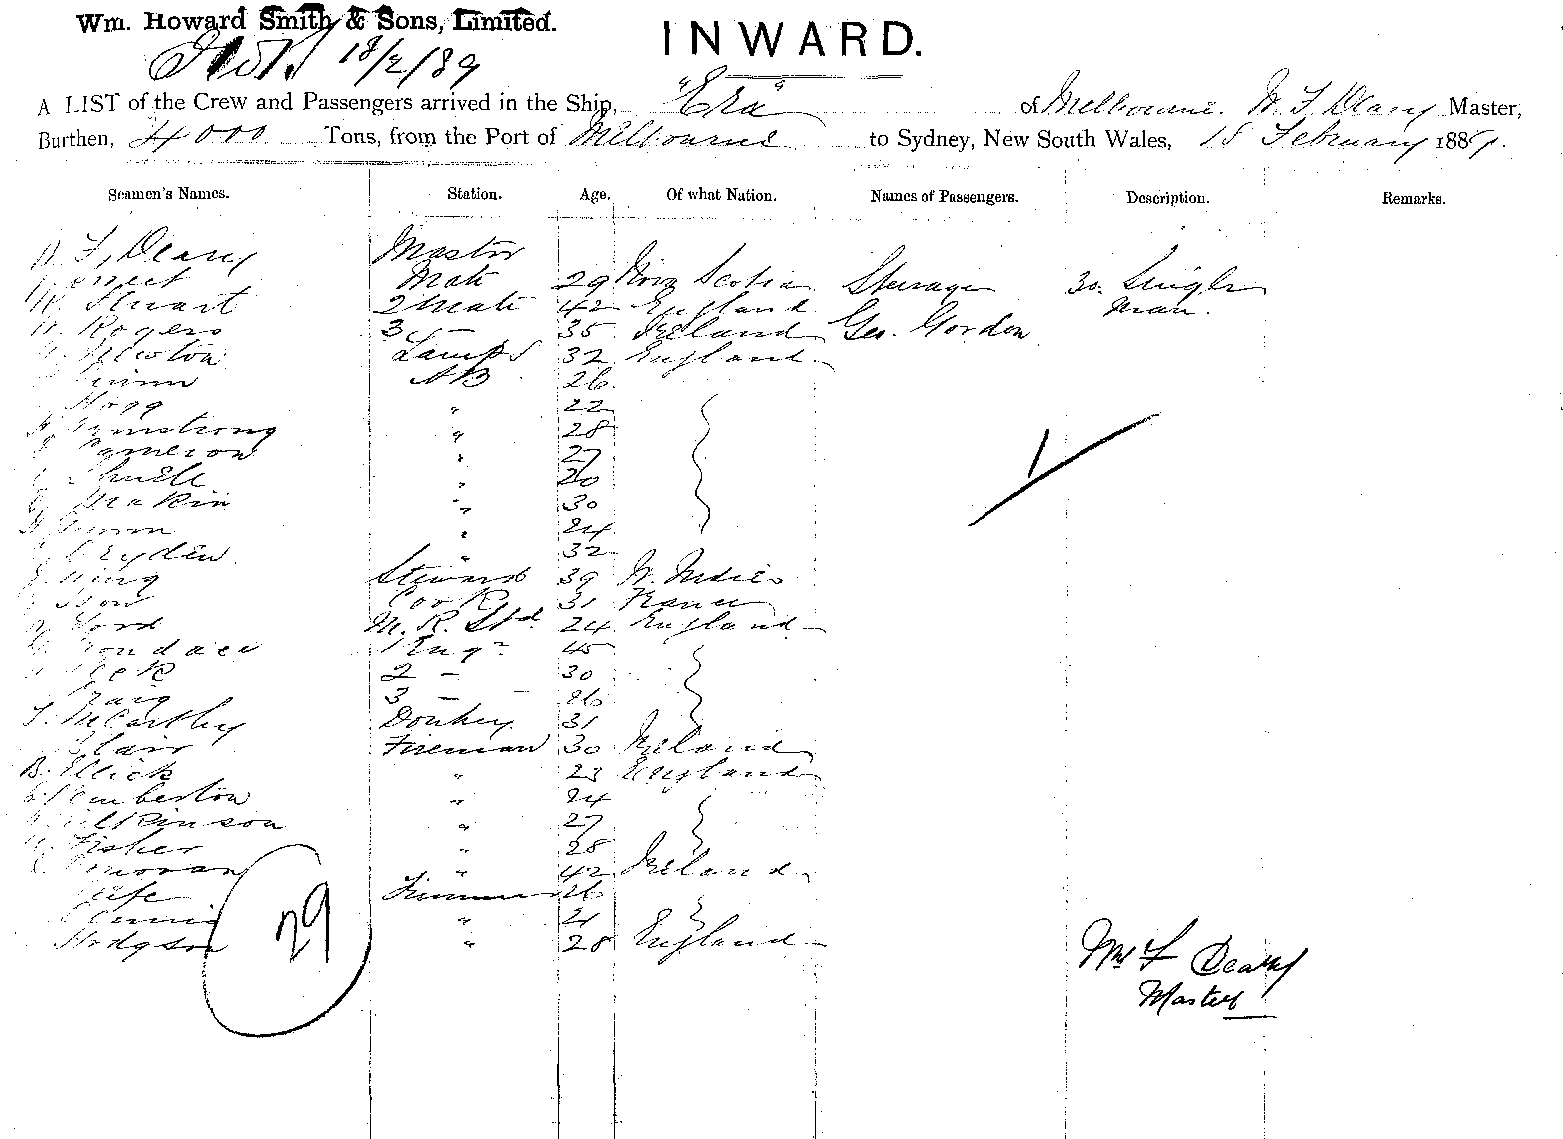 Wm. Howard Smith & Sons, Limited.
INWARD.
18/2/89
A LIST of the Crew and Passengers arrived in the Ship, "Era" of Melbourne. W. F. Deary Master,
Burthen, 4000 Tons, from the Port of Melbourne to Sydney, New South Wales, 18 February 1889.
Seamen's Names. Station. Age. Of what Nation. Names of Passengers. Description. Remarks.
F. Deary Master
Mate 29 Nova Scotia Steerage 30. Single
Stuart 2 Mate 42 England man.
Rogers 3 — 35 Ireland Geo. Gordon
Newton Lamps 32 England
AB 26
Hogg " 22
Armstrong " 28
Cameron " 27
" 20
Makin " 30
" 24
" 32
King Steward 39 W. Indies
Cook 31 France
Ford M. R. Std. 24 England
1 Engr 45
2 — 30
Craig 3 — — 26
T. McCarthy Donkey 31
Blair Fireman 30 Ireland
B. Ellick " 23 England
Pemberton " 24
Wilkinson " 27
Fisher " 28
Donovan " 42 Ireland
26
" 21
Hodgson " 28 England
29
Wm F Deary
Master